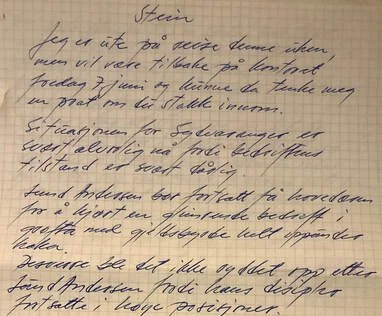 Stein
Jeg er ute på reise denne uken,
men vil være tilbake på kontoret
fredag 7 juni og kunne da tenke meg
en prat om du stakk innom.
Situasjonen for Sydvaranger er
svært alvorlig nå fordi bedriftens
tilstand er svært dårlig.
Lund Andersen bør fortsatt få hovedæren
for å kjørt en glimrende bedrift i
grøfta med gjeldsbyrde helt oppunder
haken
Dessverre ble det ikke ryddet opp etter
Lund Andersen fordi hans disipler
fortsatte i høye posisjoner.